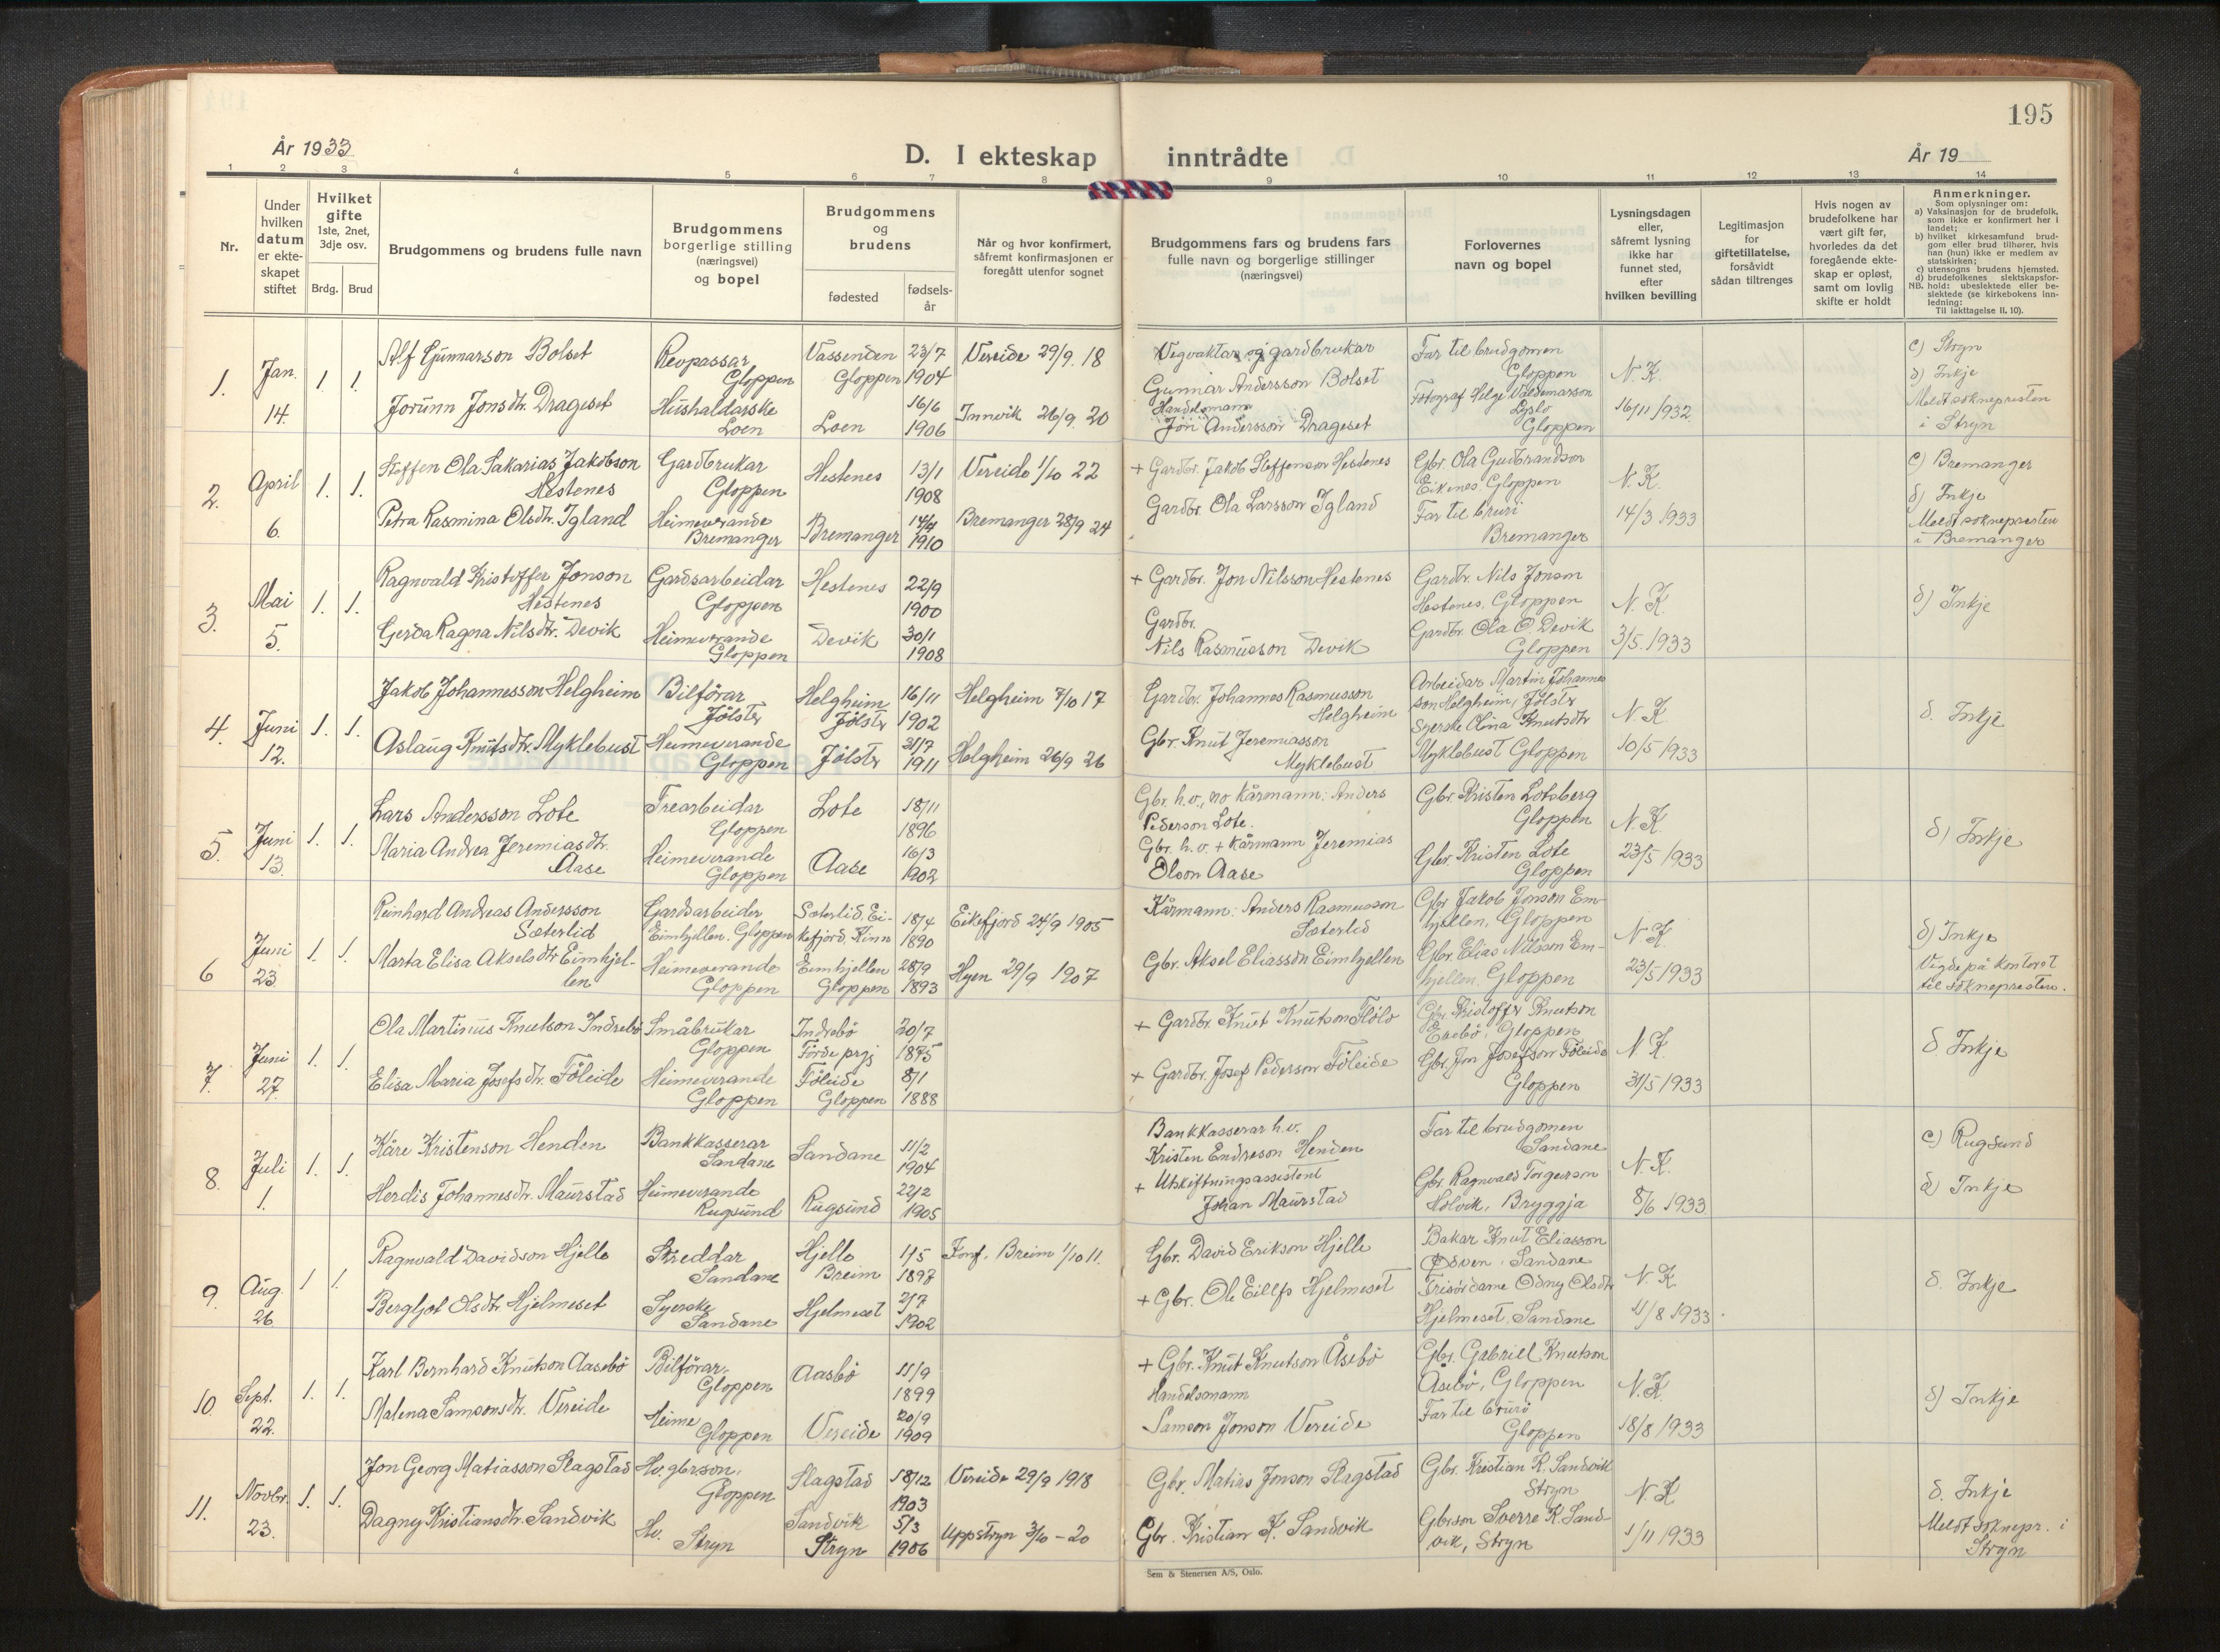 195
År 1933
D. I ekteskap inntrådte
År 19
1 2 3 4 5 6 7 8 9 10 11 12 13 14
Nr.
Under
hvilken
datum
er ekte-
skapet
stiftet
Hvilket
gifte
1ste, 2net,
3dje osv.
Brdg. Brud
Brudgommens og brudens fulle navn
Brudgommens
borgerlige stilling
(næringsvei)
og bopel
Brudgommens
og
brudens
fødested
fødsels-
år
Når og hvor konfirmert,
såfremt konfirmasjonen er
foregått utenfor sognet
Brudgommens fars og brudens fars
fulle navn og borgerlige stillinger
(næringsvei)
Forlovernes
navn og bopel
Lysningsdagen
eller,
såfremt lysning
ikke har
funnet sted,
efter
hvilken bevilling
Legitimasjon
for
giftetillatelse,
forsåvidt
sådan tiltrenges
Hvis nogen av
brudefolkene har
vært gift før,
hvorledes da det
foregående ekte-
skap er opløst,
samt om lovlig
skifte er holdt
Anmerkninger.
Som oplysninger om:
a) Vaksinasjon for de brudefolk,
som ikke er konfirmert her i
landet;
b) hvilket kirkesamfund brud-
gom eller brud tilhører, hvis
han (hun) ikke er medlem av
statskirken;
c) utensogns brudens hjemsted.
d) brudefolkenes slektskapsfor-
NB. hold: ubeslektede eller be-
slektede (se kirkebokens inn-
ledning:
Til iakttagelse II. 10).
1.
Jan.
14.
1 1.
Alf Gunnarson Bolset
Jorunn Jonsdtr. Drageset
Revpassar
Gloppen
Hushaldarske
Loen
Vassenden
Gloppen
Loen
23/7
1904
16/6
1906
Vereide 29/9. 18
Innvik 26/9. 20
Vegvaktar og gardbrukar
Gunnar Andersson Bolset
Handelsmann
Jon Andersson Drageset
Far til brudgomen
Gloppen
Fotograf Helge Valdemarson
Lyslo
Gloppen
N. K.
16/11 1932
c) Stryn
d) Inkje
Meldt soknepresten
i Stryn
2.
April
6.
1. 1.
Steffen Ola Sakarias Jakobson
Hestenes
Petra Rasmina Olsdtr. Igland
Gardbrukar
Gloppen
Heimeverande
Bremanger
Hestenes
Bremanger
13/1
1908
14/4
1910
Vereide 1/10 22
Bremanger 28/9 24
+ Gardbr. Jakob Steffenson Hestenes
Gardbr. Ola Larsson Igland
Gbr. Ola Gudbrandson
Eikenes. Gloppen
Far til bruri
Bremanger
N. K.
14/3 1933
c) Bremanger
d) Inkje
Meldt soknepresten
i Bremanger
3.
Mai
5.
1. 1.
Ragnvald Kristoffer Jonson
Hestenes
Gerda Ragna Nilsdtr. Devik
Gardsarbeidar
Gloppen
Heimeverande
Gloppen
Hestenes
Devik
22/9
1900
30/1
1908
+ Gardbr. Jon Nilsson Hestenes
Gardbr.
Nils Rasmusson Devik
Gardbr. Nils Jonson
Hestenes, Gloppen
Gardbr. Ola O. Devik
Gloppen
N. K.
3/5. 1933
d) Inkje
4.
Juni
12.
1. 1.
Jakob Johannesson Helgheim
Aslaug Knutsdtr. Myklebust
Bilförar
Jölster
Heimeverande
Gloppen
Helgheim
Jölstr
Jölstr
16/11
1902
31/7
1911
Helgheim 7/10 17
Helgheim 26/9 26
Gardbr. Johannes Rasmusson
Helgheim
Gbr. Knut Jeremiasson
Myklebust
Arbeidar Martin Johannes
son Helgheim, Jölstr
Syerske Olina Knutsdtr
Myklebust Gloppen
N. K.
10/5 1933
d. Inkje
5.
Juni
13.
1. 1.
Lars Andersson Lote
Maria Andrea Jeremiasdtr.
Aase
Trearbeidar
Gloppen
Heimeverande
Gloppen
Lote
Aase
18/11
1896
16/3
1902
Gbr. h.v., no kårmann: Anders
Pederson Lote.
Gbr. h.v. + kårmann Jeremias
Olson Aase
Gbr. Kristen Lotsberg
Gloppen
Gbr. Kristen Lote
Gloppen
N. K.
23/5 1933
d) Inkje
6
Juni
23.
1. 1.
Reinhard Andreas Andersson
Sæterlid
Marta Elisa Akselsdtr Eimhjel-
len
Gardsarbeider
Eimhjellen. Gloppen
Heimeverande
Gloppen
Sæterlid. Ei-
kefjord, Kinn
Eimhjellen
Gloppen
18/4
1890
28/9
1893
Eikefjord 24/9 1905
Hyen 29/9 1907
Kårmann: Anders Rasmusson
Sæterlid
Gbr. Aksel Eliasson Eimhjellen
Gbr Jakob Jonson Em-
hjellen, Gloppen
Gbr. Elias Nilsson Em-
hjellen. Gloppen
N. K.
23/5 1933
d) Inkje
Vigde på kontoret
til soknepresten.
7.
Juni
27.
1. 1.
Ola Martinius Knutson Indrebö
Elisa Maria Josefsdtr. Föleide
Småbrukar
Gloppen
Heimeverande
Gloppen
Indrebö
Förde prgj
Föleide
Gloppen
20/7
1875
8/1
1888
+ Gardbr. Knut Knutson Flölo
+ Gardbr. Josef Pederson Föleide
Gbr. Kristoffer Knutson
Gloppen
Gbr. Jon Josefson Föleide
Gloppen
N. K.
31/5 1933
d. Inkje
8.
Juli
1.
1. 1.
Kåre Kristenson Henden
Herdis Johannesdtr. Maurstad
Bankkasserar
Sandane
Heimeverande
Rugsund
Sandane
Rugsund
11/2
1904
22/2
1905
Bankkasserar h.v.
Kristen Endreson Henden
+ Utskiftningsassistent
Johan Maurstad
Far til brudgomen
Sandane
Gbr. Ragnvald Torgerson
Holvik, Bryggja
N. K.
8/6 1933
c) Rugsund
d) Inkje
9.
Aug.
26
1 1.
Ragnvald Davidson Hjelle
Bergljot Olsdtr. Hjelmeset
Skreddar
Sandane
Syerske
Sandane
Hjelle
Breim
Hjelmeset
1/5
1897
2/7
1902
Konf. Breim 1/10 11.
Gbr. David Erikson Hjelle
+ Gbr. Ole Eilefs Hjelmeset
Bakar Knut Eliasson
Ødven. Sandane
Frisördame Odny Olsdtr
Hjelmeset, Sandane
N. K
11/8 1933.
d. Inkje
10.
Sept.
22.
1. 1.
Karl Bernhard Knutson Aasebö
Malena Samsonsdtr. Vereide
Bilförar.
Gloppen
Heime
Gloppen
Aasbö
Vereide
11/9
1899
20/9
1909
+ Gbr. Knut Knutson Åsebö
Handelsmann
Samson Jonson Vereide
Gbr. Gabriell Knutson
Åsebö, Gloppen
Far til bruri
Gloppen
N. K.
18/8 1933
d) Inkje
11.
Novbr.
23.
1. 1.
Jon Georg Matiasson Slagstad
Dagny Kristiansdtr. Sandvik
Hv. gbrson.
Gloppen
Hv.
Stryn
Slagstad
Sandvik
Stryn
18/12
1903
5/3
1906
Vereide 29/9 1918
Uppstryn 3/10 - 20
Gbr. Matias Jonson Slagstad
Gbr. Kristian K. Sandvik
Gbr. Kristian K. Sandvik
Stryn
Gbrson Sverre K. Sand-
vik, Stryn
N. K
1/11 1933
d. Inkje
Meldt soknepr. i
Stryn
Sem & Stenersen A/S, Oslo.